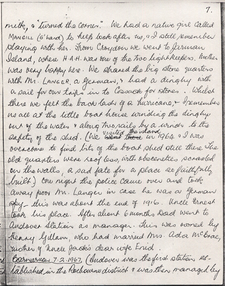 7.
melbo, & "turned the corner". We had a native girl called
to help look after us, & I still remember
playing with her. From Claydon we went to German
Island, where H.A.H. was one of the two lightkeepers. Mother
was very happy here. We shared the big stone quarters
with Mr. Langer, a German, & had a dinghy with
a sail for our trips in to Cossack for stores. Whilst
there we felt the back-lash of a hurricane, & remember
us all at the little boat house winding the dinghy
out of the water & along the rails by a winch to the
safety of the shed. (We visited the island in 1962 & I was
overcome to find bits of the boat shed still there. The
old quarters were roofless, with obscenities scrawled
on the walls, a sad fate for a place so faithfully
built.) One night the police came over and took
away poor Mr. Langer in case he was a German
spy. This was about the end of 1916. Uncle Ernest
took his place. After about 6 months Dad went to
Andover Station as manager. This was owned by
Kenny Gillam, who had married Mrs. Ada
& Uncle Jack's dear wife Enid.
7.2.1967. (Andover was the first station es-
tablished in the Roebourne district & was then managed by